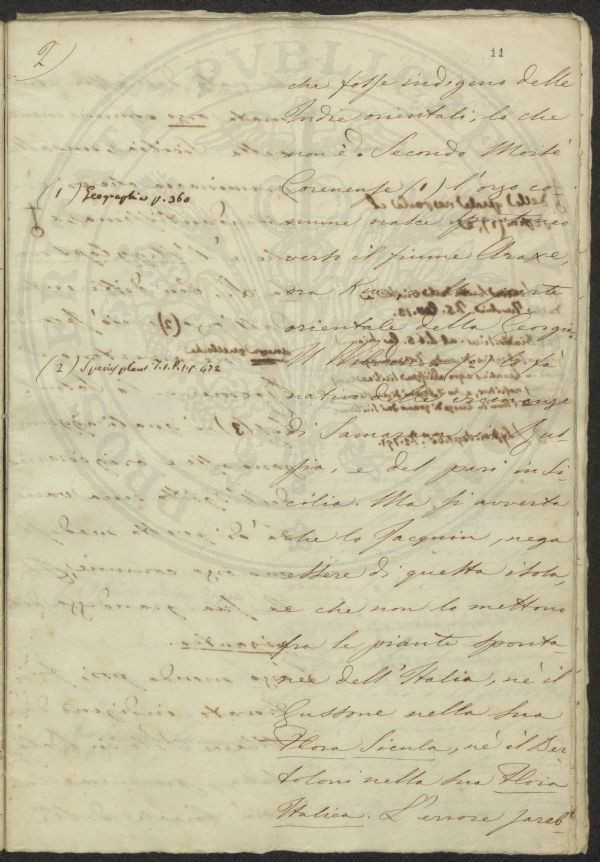 2)
11
che fosse indigeno delle
Indie orientali, lo che
non è. Secondo Mosè
Corenense (1) l'orzo co-
mune nasce spontaneo
verso il fiume Araxe,
ora nella parte
orientale della Georgia.
Il (2) lo fà
nativo delle vicinanze
di Samara in Rus-
sia, e del pari in Si-
cilia. Ma si avverta
che lo Jacquin, nega
essere di questa isola,
e che non lo mettono
fra le piante sponta-
nee dell'Italia, nè il
Gussone nella sua
Flora Sicula, nè il Ber-
toloni nella sua Flora
Italica. L'errore sareb-
(1) Geographia p. 360
(2) Species plant. T. 1. P. 1. p. 472